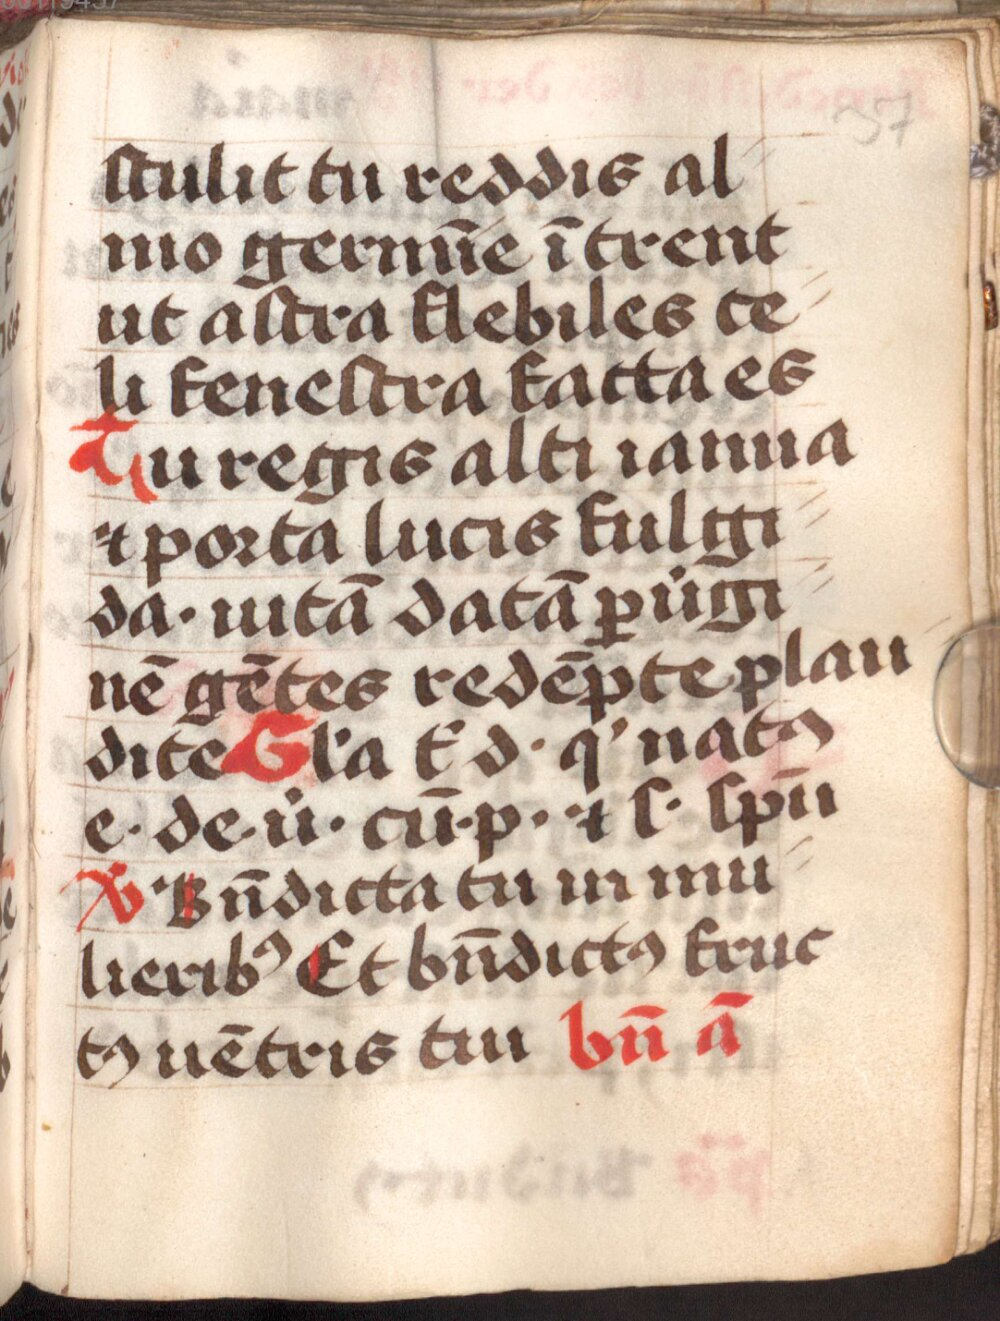 37
stulit tu reddis al
mo germīe ītrent
ut astra flebiles ce
li fenestra facta es
Tu regis alti ianua
⁊ porta lucis fulgi
da· uitā datā ꝑ uigi
nē gētes redēpte plau
dite Gl'a t' d· q' natꝰ
e· de ui· cū· p· ⁊ s· spū
℣ Bn̄dicta tu in mu
lieribꝰ Et bn̄dictꝰ fruc
tꝰ uētris tui bn̄ ā